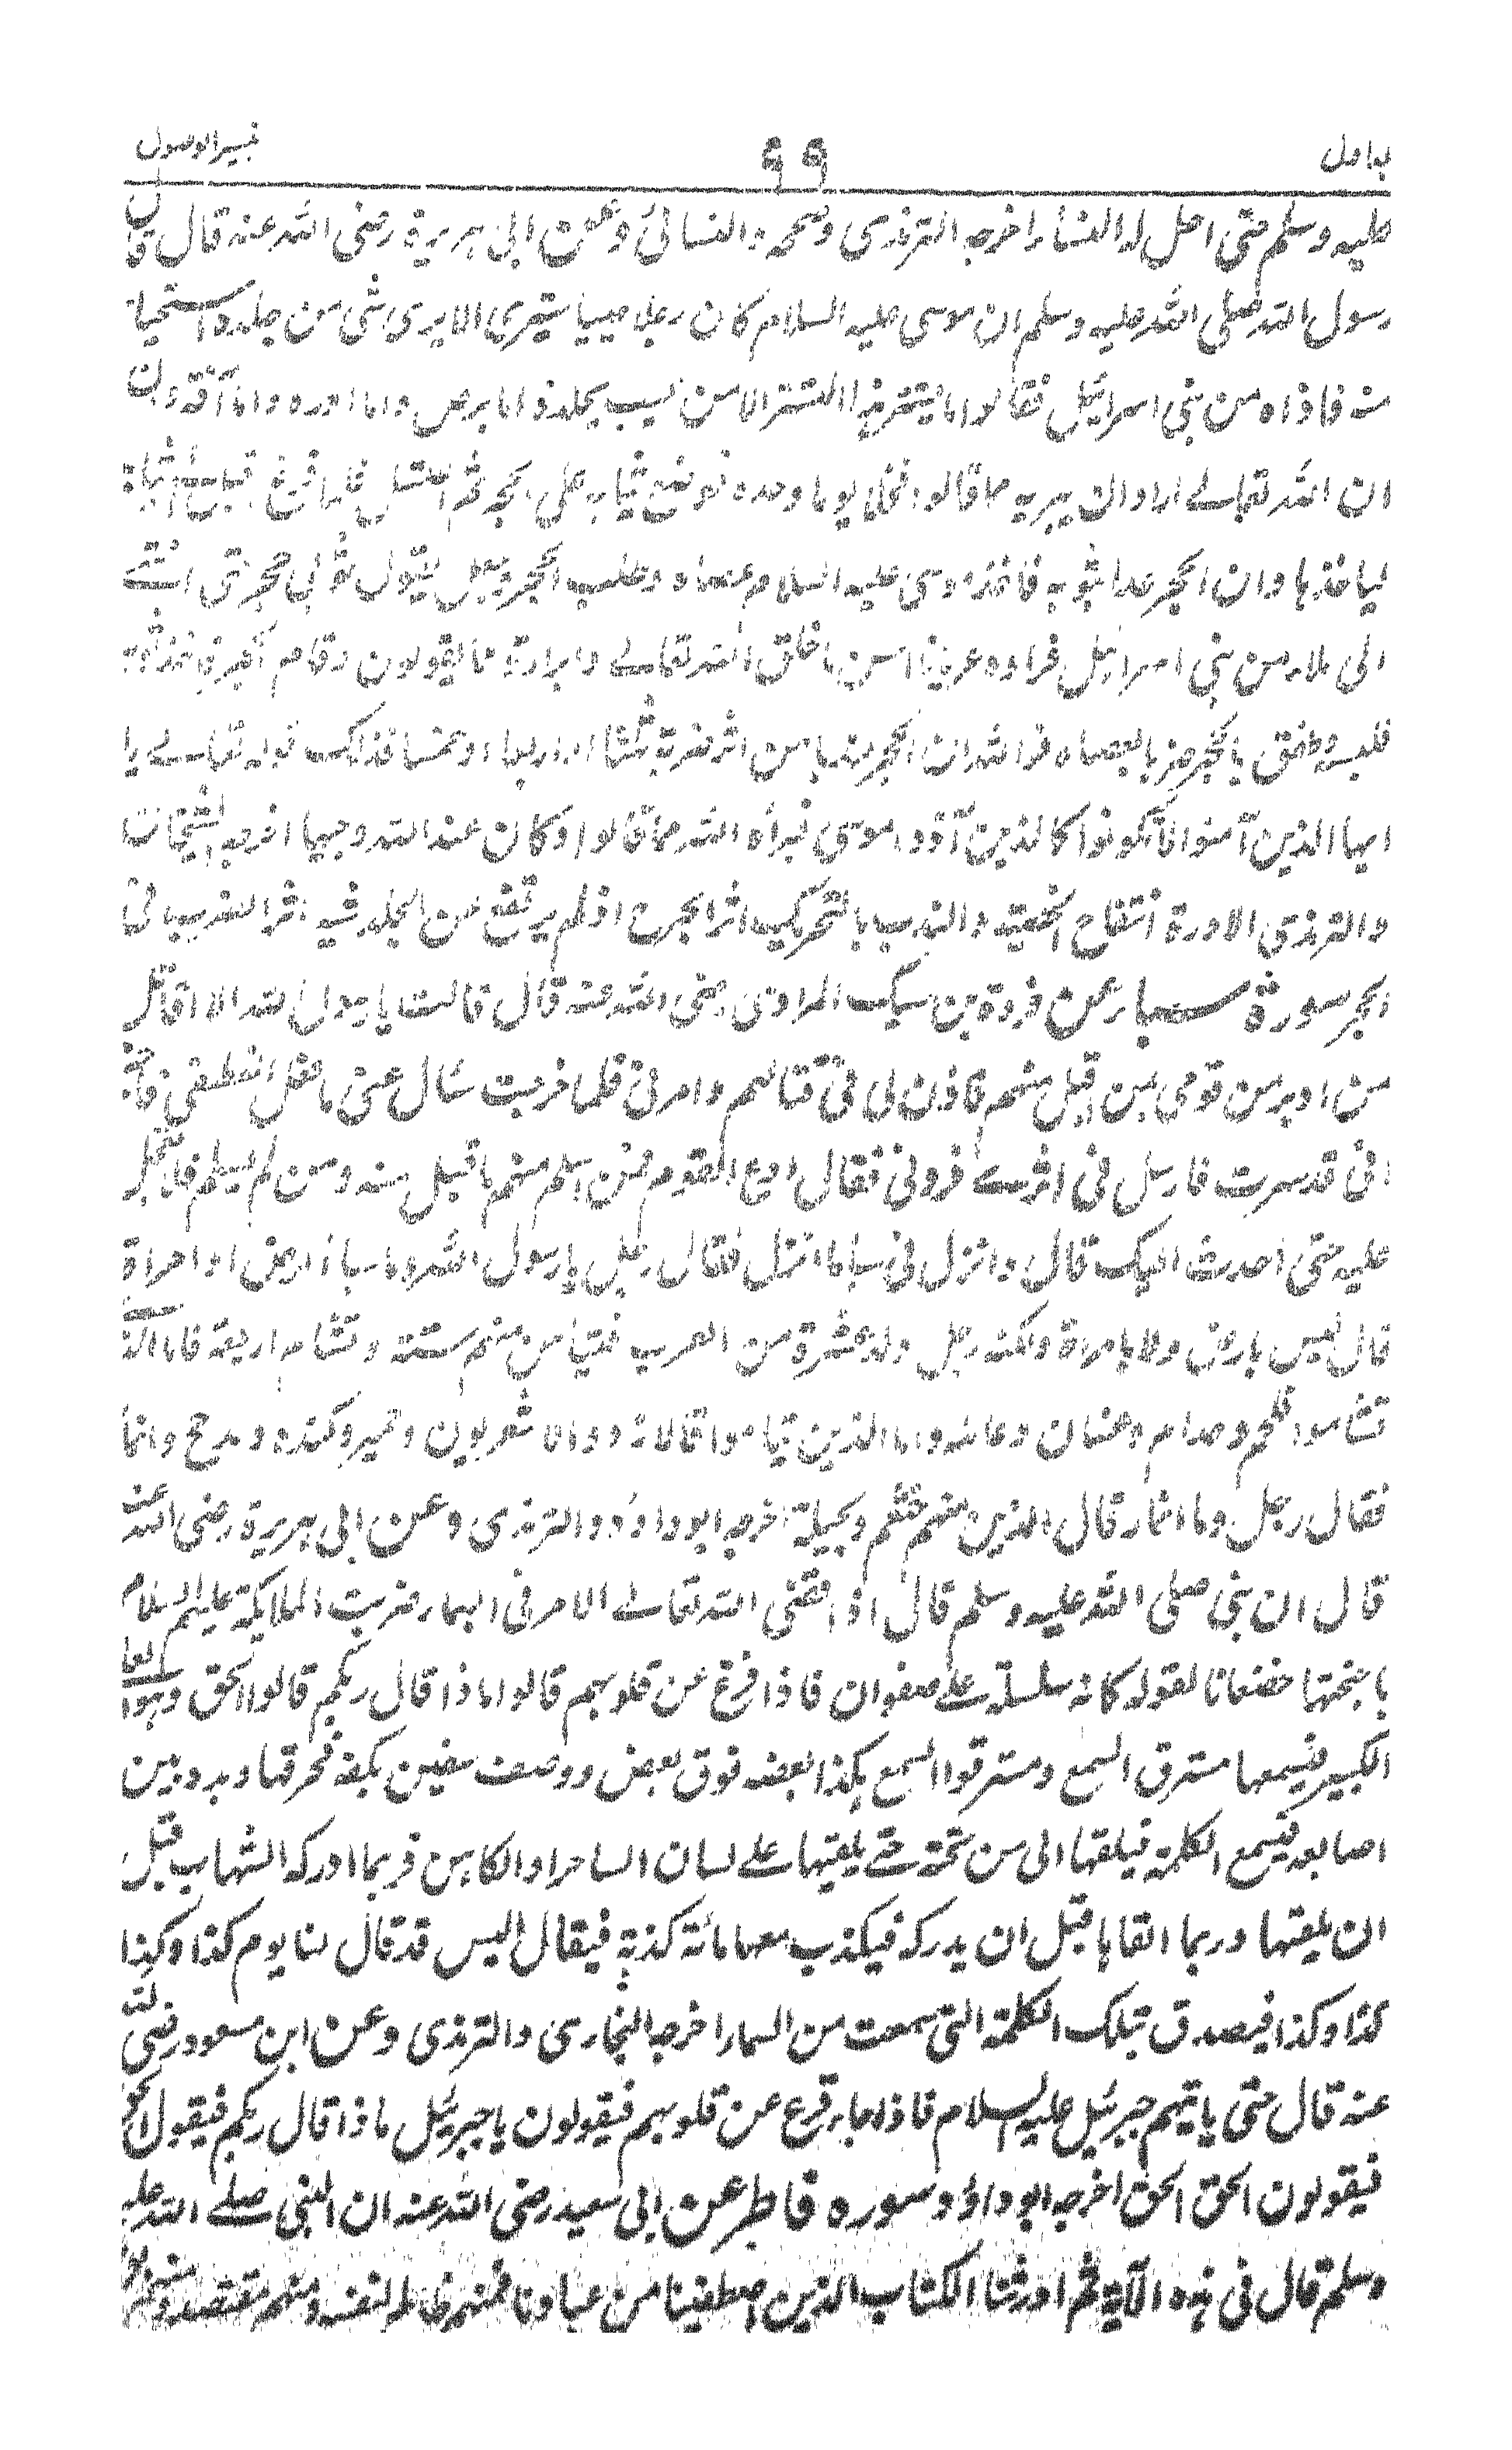 جلد اول ۹۹ تيسير الوصول
عليه وسلم حتى احل له النساء اخرجه الترمذى وصححه والنسائى وعن ابى هريرة رضى الله عنه قال قال
رسول الله صلى الله عليه وسلم ان موسى عليه السلام كان رجلا حييا ستيرى الا يرى شى من جلده استحياء
منه فاذاه من بنى اسرائيل فقالوا ما يتستر هذا التستر الا من عيب بجلده اما برص واما ادرة واما آفة وان
ان الله تعالى اراد ان يبريه مما قالوا فخلا يوما وحده فوضع ثيابه على الحجر ثم اغتسل فلما فرغ اقبل الى ثيابه
لياخذها وان الحجر عدا بثوبه فاخذ موسى عليه السلام عصاه وطلب الحجر وجعل يقول ثوبى حجر حتى انتهى
الى ملاء من بنى اسرائيل فراوه عريانا احسن ما خلق الله تعالى وابراه مما يقولون وقام الحجر فاخذ ثوبه
فلبسه وطفق بالحجر ضربا بعصاه فوالله ان بالحجر لندبا من اثر ضربة ثلثا او اربعا او خمسا فذلك قوله تعالى يا
ايها الذين آمنوا لا تكونوا كالذين آذوا موسى فبرأه الله مما قالوا وكان عند الله وجيها اخرجه الشيخان
والترمذى الادرة انتفاخ الخصية والندب بالتحريك اثر الجرح اذا لم يرتفع عن الجلد فشبه اثر الضرب بالحجر
الحجر سورة سبا عن فروة بن مسيك المرادى رضى الله عنه قال قالت يا رسول الله الا اقاتل
من ادبر من قومى بمن اقبل منهم فاذن لى فى قتالهم وامرنى فلما خرجت سال عنى ما فعل الغطيفى فاخبر
انى قد سرت فارسل فى اثرى فردنى فقال ادع القوم فمن اسلم منهم فاقبل منه ومن لم يسلم فلا تعجل
عليه حتى احدث اليك قال وانزل فى سبأ ما انزل فقال رجل يا رسول الله وما سبا ارض او امراة
قال ليس بارض ولا بامراة ولكنه رجل ولد عشرة من العرب فتيامن منهم ستة وتشام اربعة فاما الذين
تشاموا فلخم وجذام وغسان وعاملة واما الذين تيامنوا فالازد والاشعريون وحمير وكندة ومدحج وانمار
فقال رجل وما انمار قال الذين منهم خثعم وبجيلة اخرجه ابو داود والترمذى وعن ابى هريرة رضى الله عنه
قال ان نبى صلى الله عليه وسلم قال اذا قضى الله تعالى الامر فى السماء ضربت الملايكة عليهم السلام
باجنحتها خضعانا لقوله كانه سلسلة على صفوان فاذا فزع عن قلوبهم قالوا ماذا قال ربكم قالوا الحق وهو العلى
الكبير فيسمعها مسترق السمع ومسترقوا السمع هكذا بعضه فوق بعض ووصف سفين بكفه فحرفها وبدد بين
اصابعه فيسمع الكلمة فيلقيها الى من تحته حتى يلقيها على لسان الساحر او الكاهن فربما ادركه الشهاب قبل
ان يلقيها وربما القاها قبل ان يدركه فيكذب معها مائة كذبة فيقال اليس قد قال لنا يوم كذا وكذا
كذا وكذا فيصدق بتلك الكلمة التى سمعت من السماء اخرجه البخارى والترمذى وعن ابن مسعود رضى الله
عنه قال حتى ياتيهم جبرئيل عليه السلام فاذا جاء فزع عن قلوبهم فيقولون يا جبرئيل ماذا قال ربكم فيقول الحق
فيقولون الحق الحق اخرجه ابو داؤد سوره فاطر عن ابى سعيد رضى الله عنه ان النبى صلے الله عليه
وسلم قال فى هذه الآية ثم اورثنا الكتاب الذين اصطفينا من عبادنا فمنهم ظالم لنفسه ومنهم مقتصد ومنهم